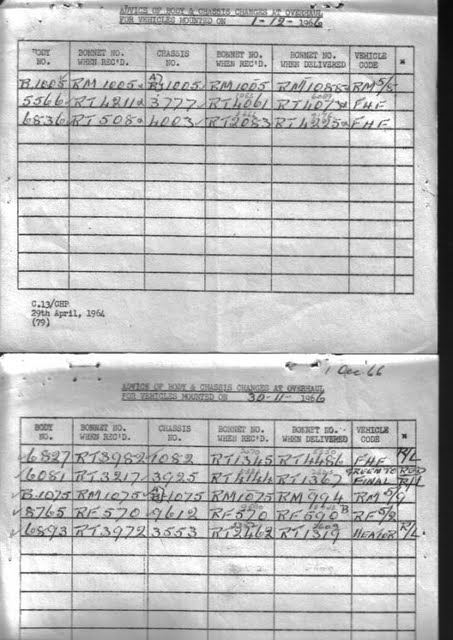 ADVICE OF BODY & CHASSIS CHANGES AT OVERHAUL
FOR VEHICLES MOUNTED ON 1-12-1966
BODY NO. BONNET NO. WHEN REC'D. CHASSIS NO. BONNET NO. WHEN REC'D. BONNET NO. WHEN DELIVERED VEHICLE CODE *
B.1005 RM 1005 1005 RM1005 RM1088 RM 5/8
5566 RT 4211 3777 RT4061 RT4073 FHF
6836 RT 508 4003 RT2083 RT4225 FHF
C.13/CHP
29th April, 1964
(79)
1 Dec '66
ADVICE OF BODY & CHASSIS CHANGES AT OVERHAUL
FOR VEHICLES MOUNTED ON 30-11-1966
BODY NO. BONNET NO. WHEN REC'D. CHASSIS NO. BONNET NO. WHEN REC'D. BONNET NO. WHEN DELIVERED VEHICLE CODE *
6827 RT3982 1082 RT1345 RT4486 FHF R/L
6081 RT3217 3925 RT4144 RT1367 GREEN TO RED FINAL R/L
B.1075 RM1075 1075 RM1075 RM994 RM 5/9
8765 RF570 9612 RF570 RF590 B RF 5/2
6893 RT3972 3553 RT2462 RT1319 HEATER R/L